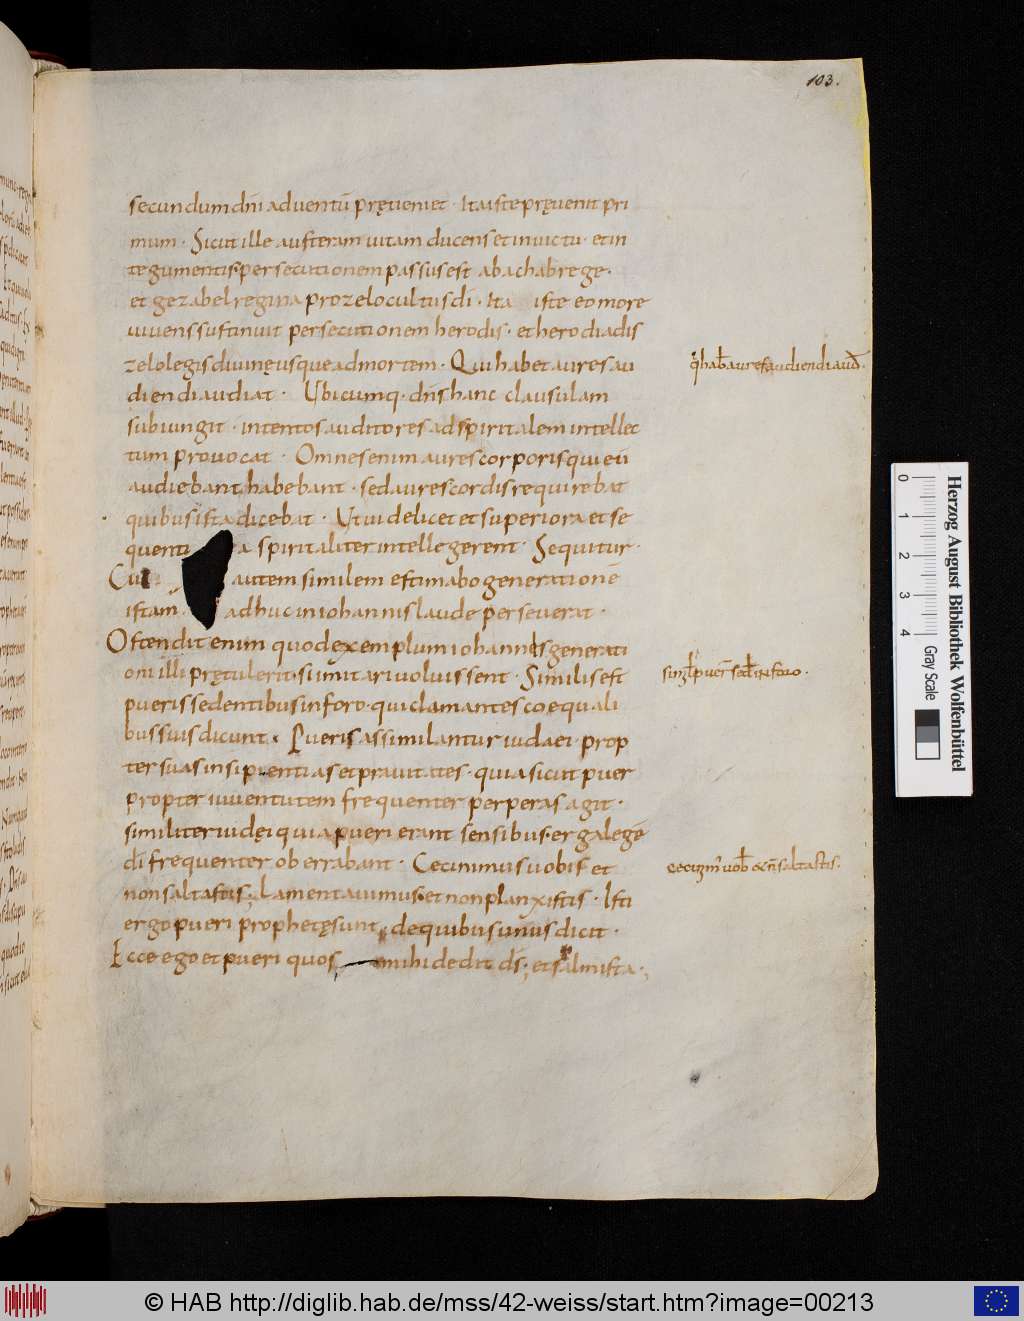 103.
secundum dni aduentū pręueniet · Ita iste pręuenit pri
mum · Sicut ille austeram uitam ducens et in uictu · et in
tegumentis · persecutionem passus est ab achab rege ·
et gezabel regina pro zelo cultus di · Ita iste eo more
uiuens sustinuit persecutionem herodis · et herodiadis
zelo legis diuinę usque ad mortem · Qui habet aures au
diendi audiat · Ubicumq · dns hanc clausulam
subiungit · intentos auditores ad spiritalem intellec
tum prouocat · Omnes enim aures corporis qui eū
audiebant habebant · sed aures cordis requirebat
quibus ista dicebat · Ut uidelicet et superiora et se
quenti a spiritaliter intellegerent · Sequitur ·
Cui autem similem estimabo generationē
istam · adhuc in iohannis laude perseuerat ·
Ostendit enim quod exemplum iohannis generati
oni illi prętulerit · si imitari uoluissent · Similis est
pueris sedentibus in foro · qui clamantes coequali
bus suis dicunt · Pueris assimilantur iudaei · prop
ter suas insipientias et prauitates · quia sicut puer
propter iuuentutem frequenter perperas agit ·
similiter iudęi quia pueri erant sensibus · erga legē
di frequenter oberrabant · Cecinimus uobis et
non saltastis · Lamentauimus · et non planxistis · Isti
ergo pueri prophetę sunt · de quibus unus dicit ·
Ecce ego et pueri quos mihi dedit ds · et psalmista ·
Herzog August Bibliothek Wolfenbüttel
0 1 2 3 4 Gray Scale
© HAB http://diglib.hab.de/mss/42-weiss/start.htm?image=00213